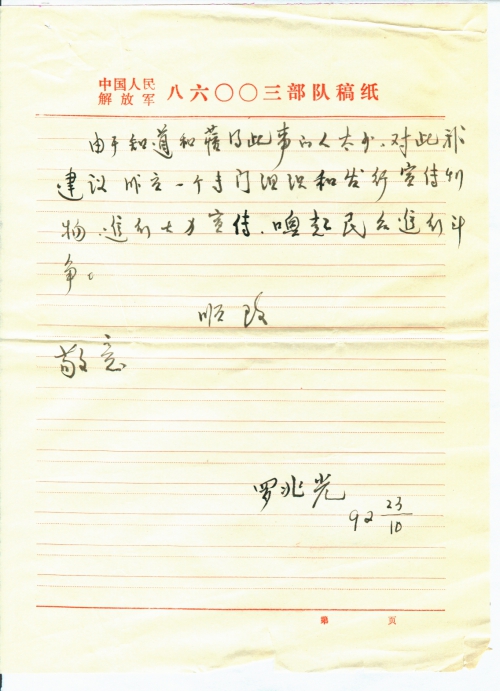 中国人民
解放军 八六〇〇三部队稿纸
由于知道和懂得此事的人太少、对此我
建议成立一个专门组织和发行宣传刊
物、进行大力宣传、唤起民众进行斗
争。
顺致
敬意
罗兆光
92 23/10
第 页